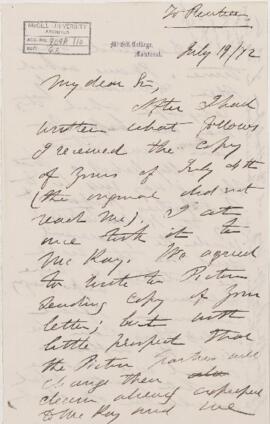 To Printer
McGILL UNIVERSITY
ARCHIVES
ACC. NO.
REF.
McGill College,
Montreal.
July 19/72
My dear Sir,
After I had
written what follows
I received the copy
of yours of July 4th
(the original did not
reach me). I at
once took it to
McKay. We agreed
to write to Pictou
sending copy of your
letter; but with
little prospect that
the Pictou parties will
change their
claim already expressed
to McKay and me